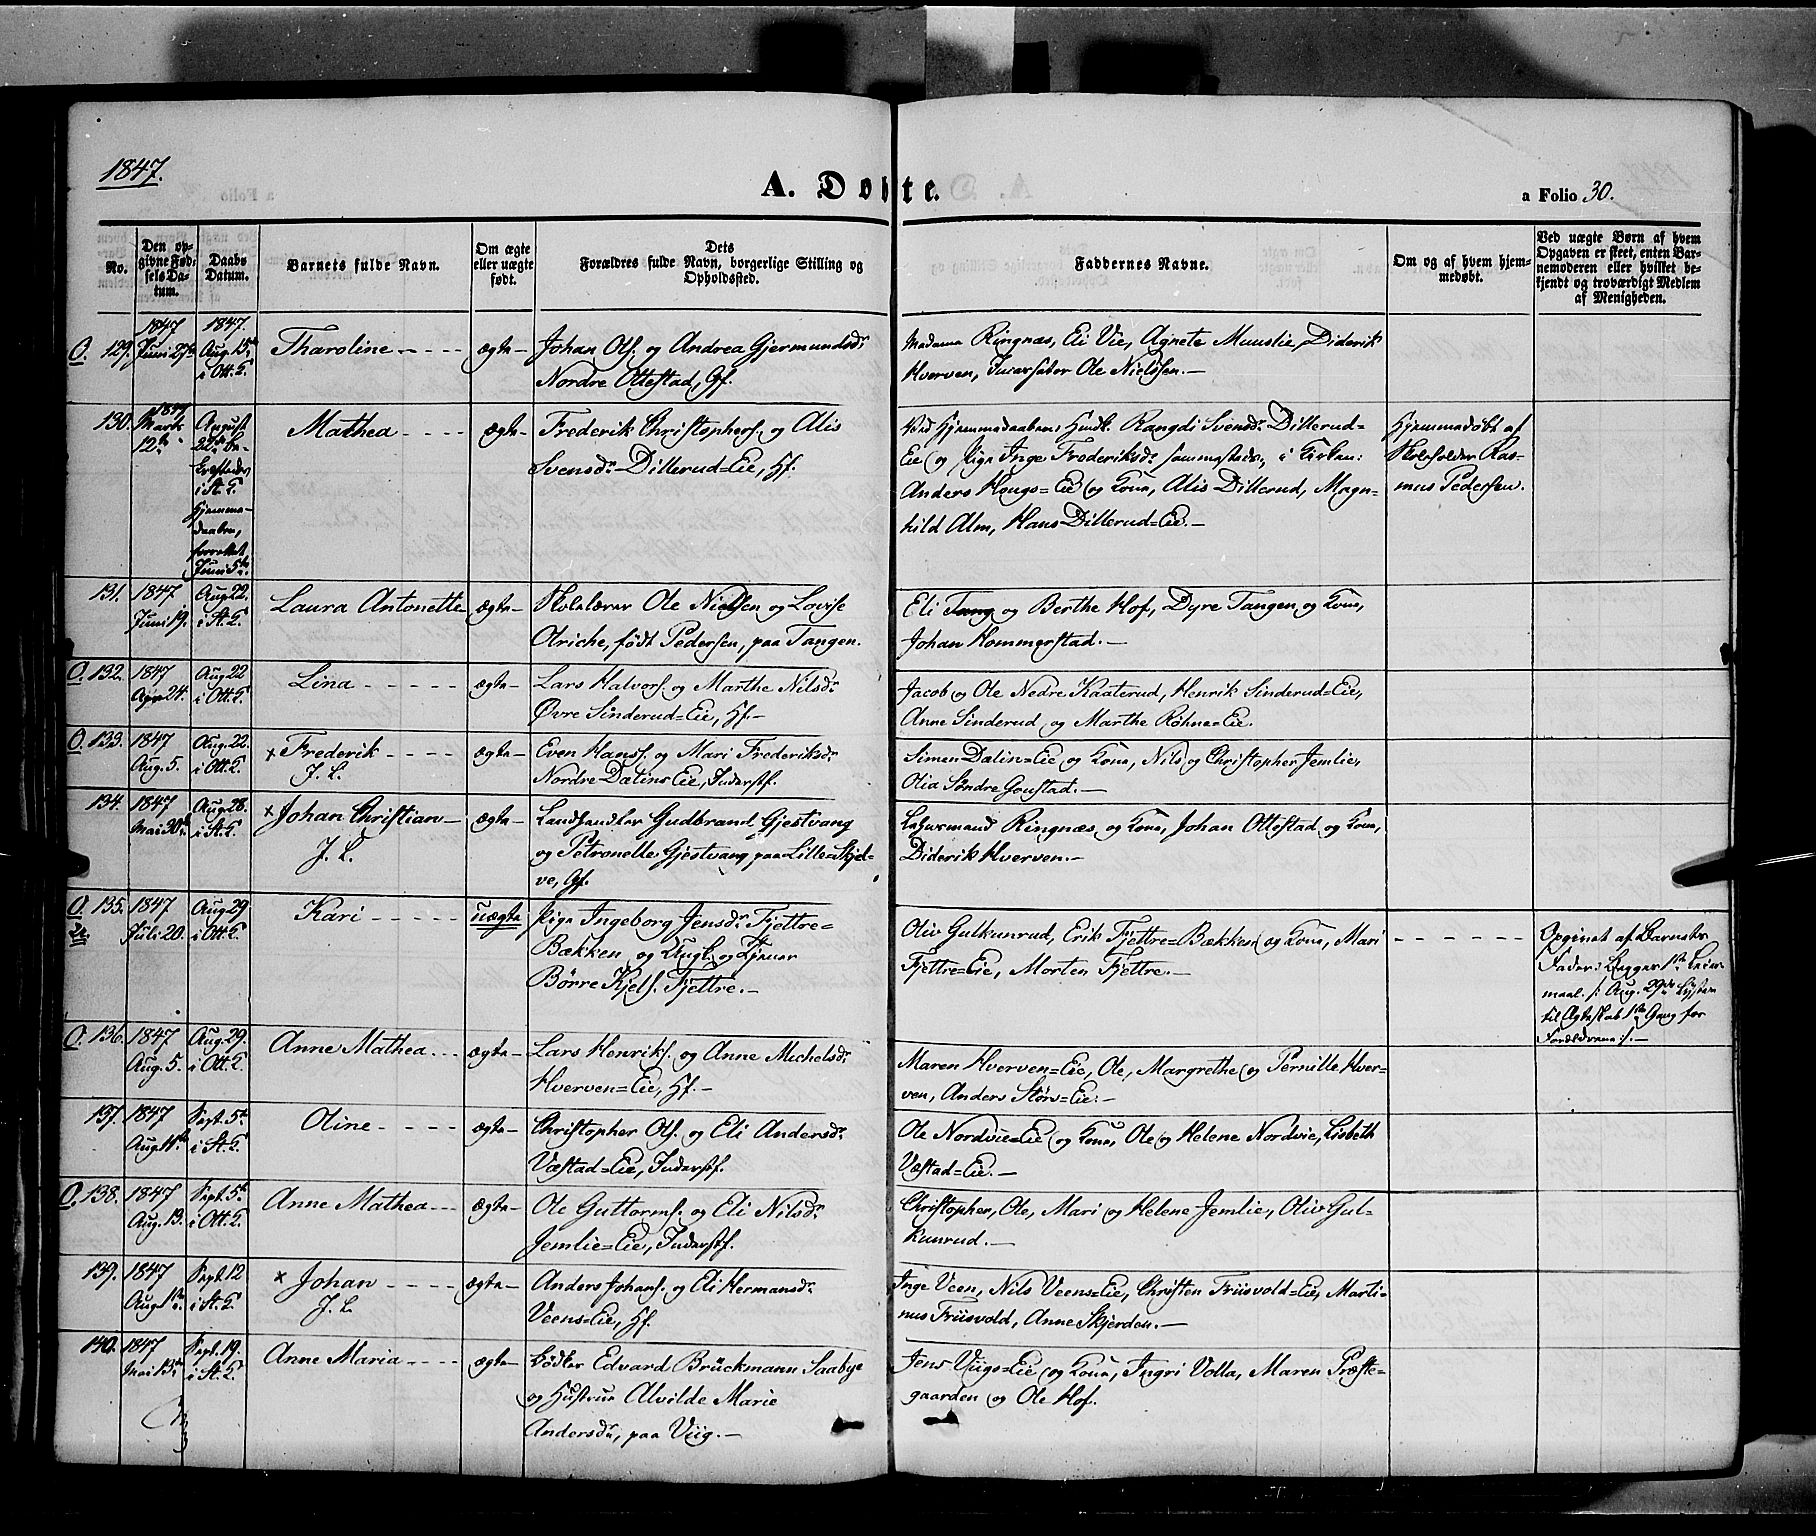 1847.
A. Døbte.
a Folio 30.
No.
Den op-
givne Fød-
sels Da-
tum.
Daabs
Datum.
Barnets fulde Navn.
Om ægte
eller uægte
født.
Dets
Forældres fulde Navn, borgerlige Stilling og
Opholdssted.
Faddernes Navne.
Om og af hvem hjem-
medøbt.
Ved uægte Børn af hvem
Opgaven er skeet, enten Bar-
nemoderen eller hvilket be-
kjendt og troværdigt Medlem
af Menigheden.
O. 129. 1847 Juni 27de 1847. Aug. 15de i Ott. K. Tharoline ægte Johan Ols. og Andrea Gjermundsdr
Nordre Ottestad, Gf.
Madame Ringnæs, Ei Vie, Agnete Muuslie, Diderik
Hverven, Ole Nielssen.
130. 1847 Marts 12te August 22de be-
kræftedes
i St. K.
Hjemme-
daaben,
forrettet
Juni 5te.
Mathea ægte Frederik Christophers. og Alis
Svensdr Dillerud=Eie, Hf.
Ved Hjemmedaaben: Hmdk. Rangdi Svensdr Dillerud=
Eie og Pige Inge Frederiksdr sammesteds, i Kirken:
Anders Hougs=Eie og Kone, Alis Dillerud, Magn-
hild Alm, Hans Dillerud=Eie.
Hjemmedøbt af
Skoleholder Ras-
mus Pedersen.
131. 1847 Juni 19. Aug. 22. i St. K. Laura Antonette ægte Skolelærer Ole Nielssen og Lovise
Olriche, født Pedersen, paa Tangen.
Eli Tang og Berthe Hof, Dyre Tangen og Kone,
Johan Hommerstad.
O. 132. 1847 Apr. 24. Aug. 22 i Ott. K. Lina ægte Lars Halvors. og Marthe Nilsdr
Øvre Sinderud=Eie, Hf.
Jacob og Ole Nedre Kaaterud, Henrik Sinderud=Eie,
Anne Sinderud og Marthe Røhne=Eie.
O. 133. 1847 Aug. 5. Aug. 22. i Ott. K. x Frederik
J. L.
ægte Even Hans. og Mari Frederiksdr
Nordre Dalins Eie, Inderstf.
Simen Dalin=Eie og Kone, Nils og Christopher Jemlie,
Olia Søndre Goustad.
134. 1847 Mai 30te Aug. 28. i St. K. x Johan Christian
J. L.
ægte Landhandler Gudbrand Gjestvang
og Petronelle Gjestvang paa Lille=Skjel-
ve, Gf.
Lehnsmand Ringnæs og Kone, Johan Ottestad og Kone,
Diderik Hverven.
O. 135. 1847 Juli 20. Aug. 29 i Ott. K. Kari uægte Pige Ingeborg Jensdr Fjettre=
Bækken og Ungk. og Tjener
Børre Kjels. Fjettre.
Oliv Gulkunrud, Erik Fjettre=Bækken og Kone, Mari
Fjettre=Eie, Morten Fjettre.
Opgivet af Barnets
Fader: Begges 1ste Leier-
maal. /: Aug. 29de Lysten
til Ægteskab 1ste Gang for
Forældrene:/.
O. 136. 1847 Aug. 5. Aug. 29. i Ott. K. Anne Mathea ægte Lars Henriks. og Anne Michelsdr
Hverven=Eie, Hf.
Maren Hverven=Eie, Ole, Margrethe og Pernille Hver-
ven, Anders Størs=Eie.
137. 1847 Aug. 14de Sept. 5te i St. K. Oline ægte Christopher Ols. og Eli Andersdr
Væstad=Eie, Inderstf.
Ole Nordvie=Eie og Kone, Ole og Helene Nordvie, Lisbeth
Væstad=Eie.
O. 138. 1847 Aug. 13. Sept. 5te i Ott. K. Anne Mathea ægte Ole Guttorms. og Eli Nilsdr
Jemlie=Eie, Inderstf.
Christopher, Ole, Mari og Helene Jemlie, Oliv Gul-
kunrud.
139. 1847 Aug. 1ste Sept. 12 i St. K. x Johan
J. L.
ægte Anders Johans. og Eli Hermansdr
Veens=Eie, Hf.
Inge Veen, Nils Veens=Eie, Christen Friisvold=Eie, Marti-
nus Friisvold, Anne Skjerden.
140. 1847 Mai 13de Sept. 19. i St. K. Anne Maria ægte Bødker Edvard Brückmann Saabye
og Hustrue Alvilde Marie
Andersdr, paa Viig.
Jens Viigs=Eie og Kone, Ingri Volla, Maren Præste-
gaarden og Ole Hof.